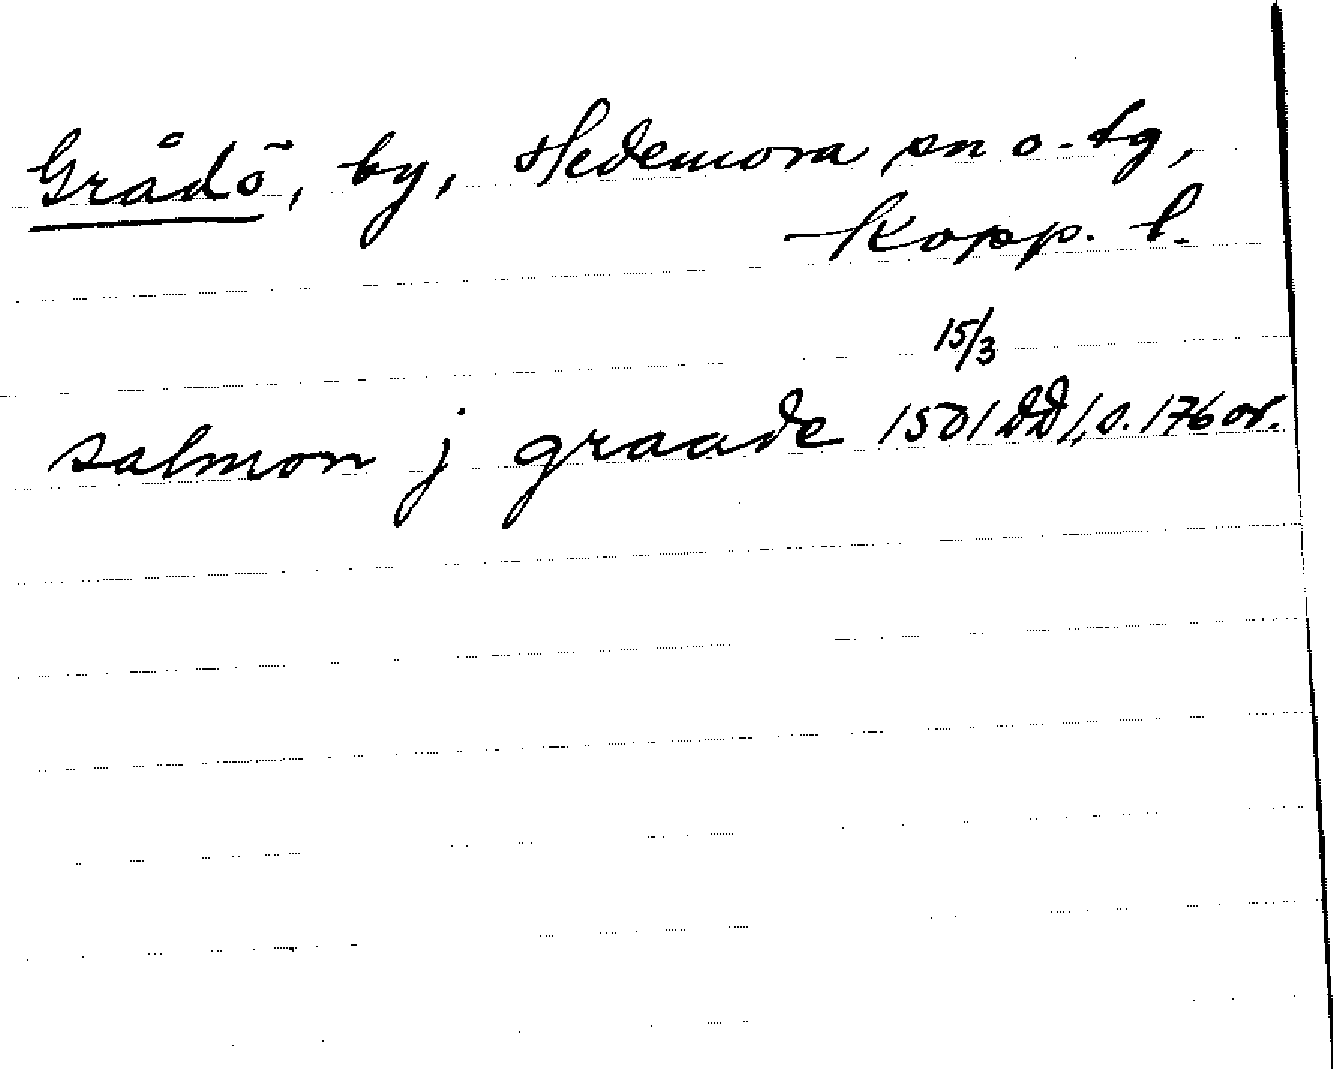 Grådö, by, Hedemora sn o. tg,
Kopp. l.
15/3
salmon j graade 1501 DD 1, s. 176 or.